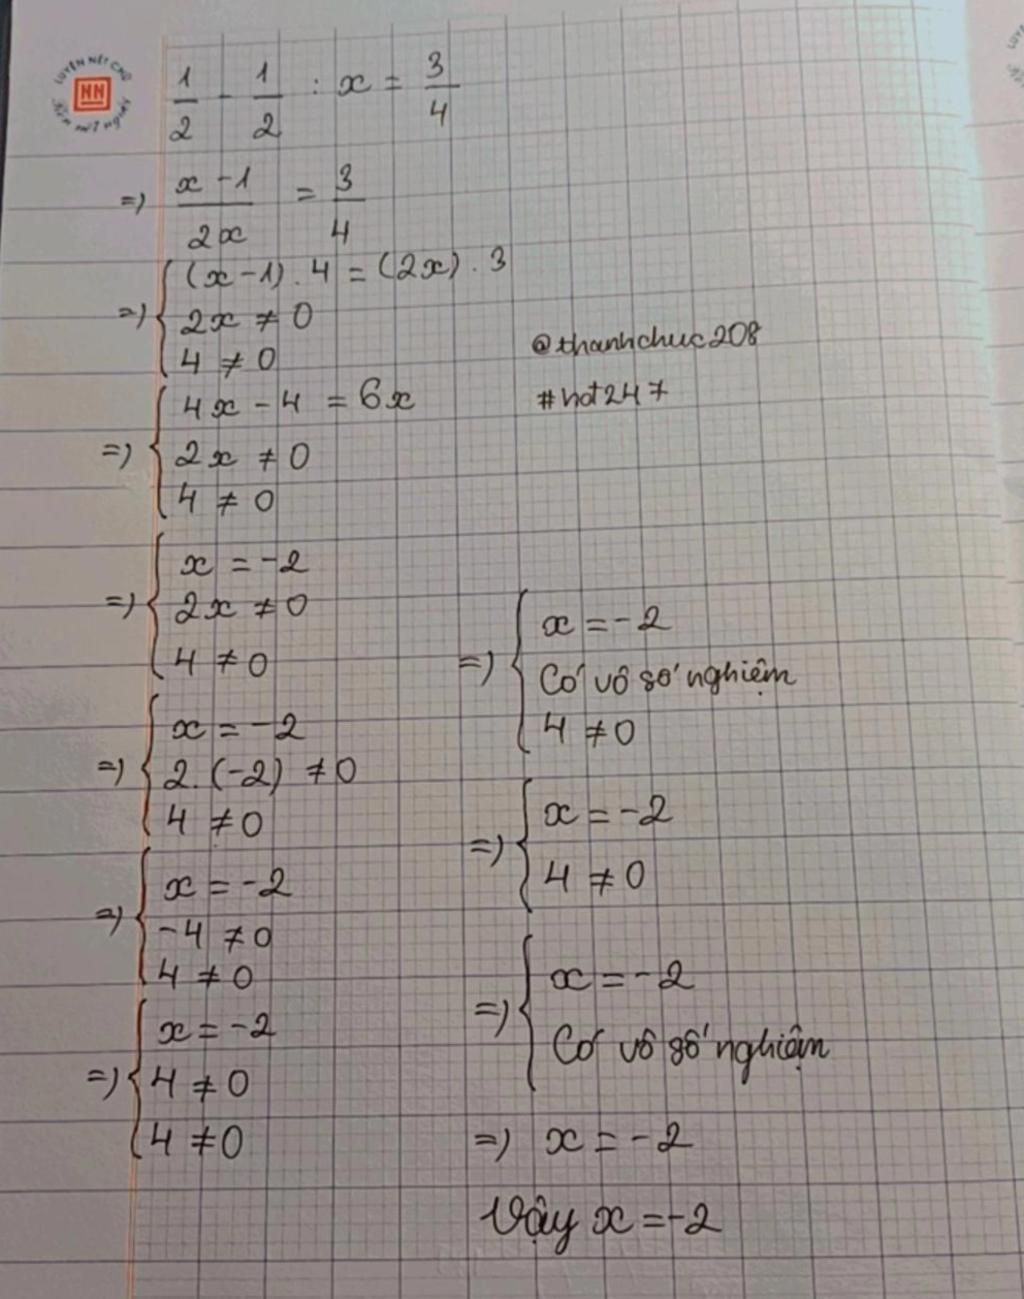 LUYỆN NÉT CHỮ
NN
Rèn nết người
1/2 - 1/2 : x = 3/4
=) x - 1/2x = 3/4
=) { (x - 1) . 4 = (2x) . 3
2x ≠ 0
4 ≠ 0
@thanhchuc208
#hot247
=) { 4x - 4 = 6x
2x ≠ 0
4 ≠ 0
=) { x = -2
2x ≠ 0
4 ≠ 0
=) { x = -2
2. (-2) ≠ 0
4 ≠ 0
=) { x = -2
-4 ≠ 0
4 ≠ 0
=) { x = -2
4 ≠ 0
4 ≠ 0
=) { x = -2
Có vô số nghiệm
4 ≠ 0
=) { x = -2
4 ≠ 0
=) { x = -2
Có vô số nghiệm
=) x = -2
Vậy x = -2